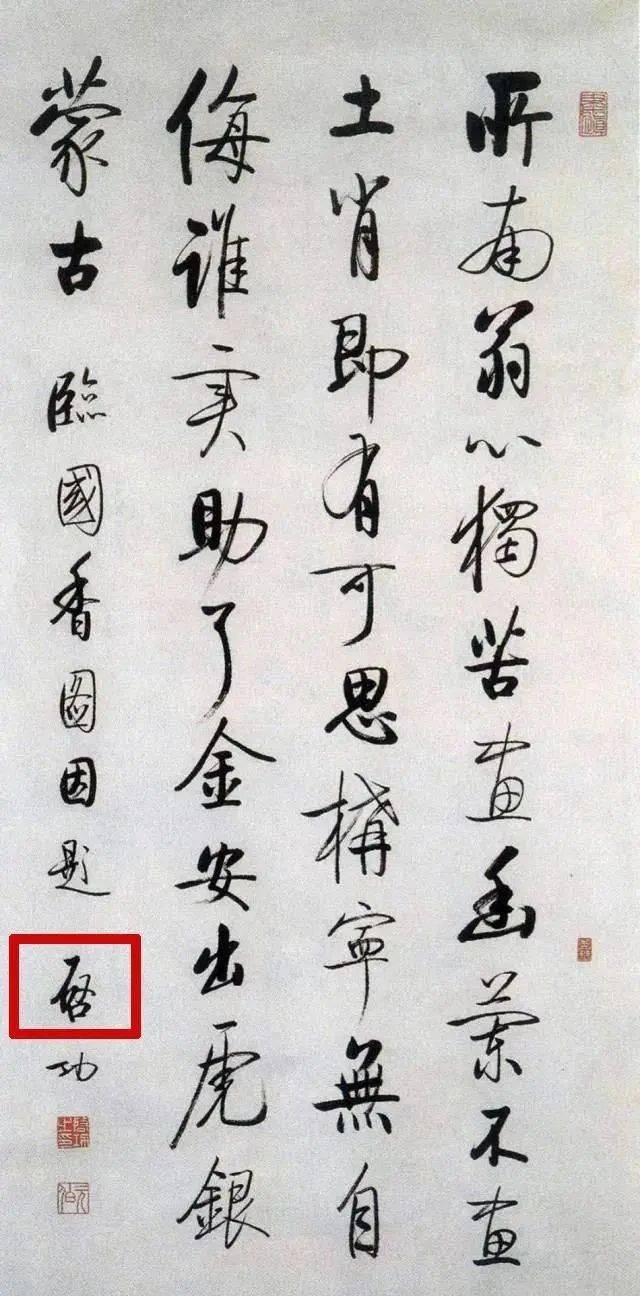 所南翁心獨苦畫幽蘭不畫
土肖即有可思構寧無自
侮誰实助了金安出虎銀
蒙古 臨國香圖因題 啓功
啓功之印
元白